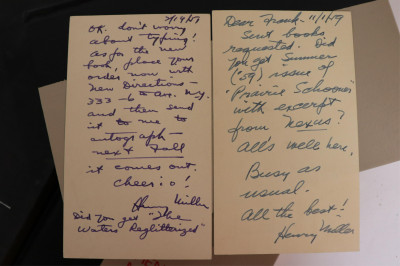 7/19/59
OK. don't worry
about typing!
as for the new
book, place your
order now with
New Directions –
333 – 6 Av. N.Y.
and then send
it to me to
autograph –
next Fall
it comes out.
Cheerio!
Henry Miller
Did you get "The
Waters Reglitterized"
Dear Frank – 11/1/59
Sent books
requested. Did
you get Summer
('59) issue of
"Prairie Schooner"
with excerpt
from Nexus?
Alls well here.
Busy as
usual.
All the best!
Henry Miller